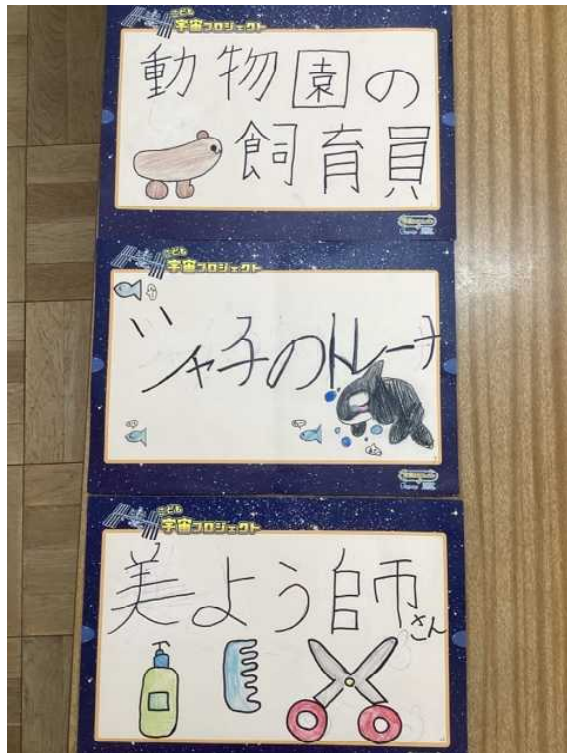 こども
宇宙プロジェクト
動物園の
飼育員
こども
宇宙プロジェクト
シャチのトレーナ
こども
宇宙プロジェクト
美よう師さん